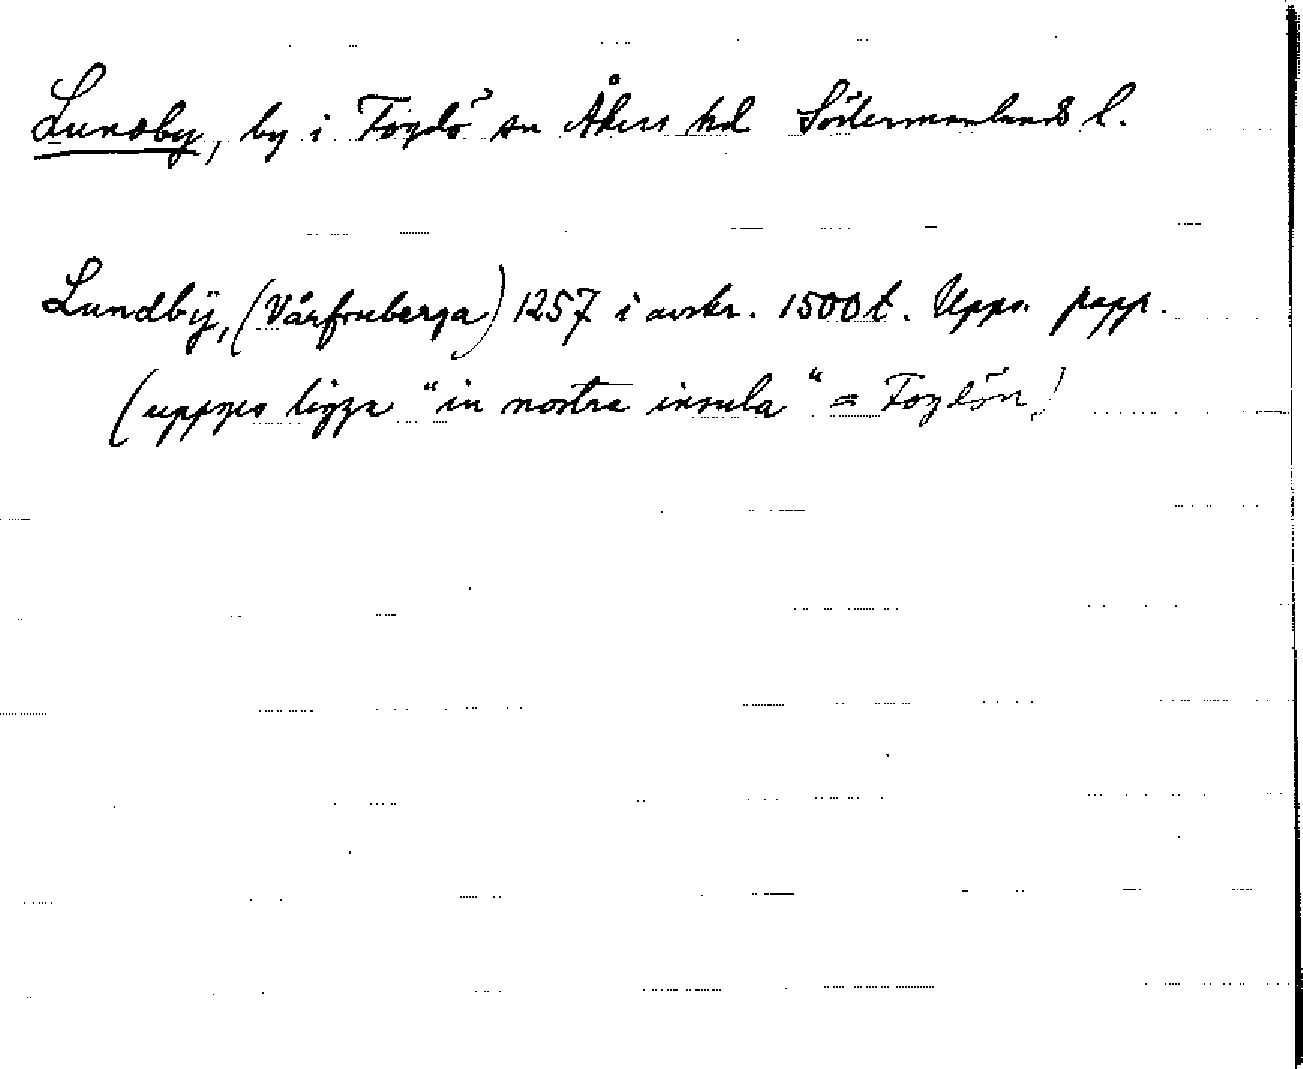 Lundby, by i Fogdö sn Åkers hd Södermanlands l.
Lundbÿ, (Vårfruberga) 1257 i avskr. 1500 t. Upps. papp.
(uppges ligga "in nostra insula" = Fogdön!